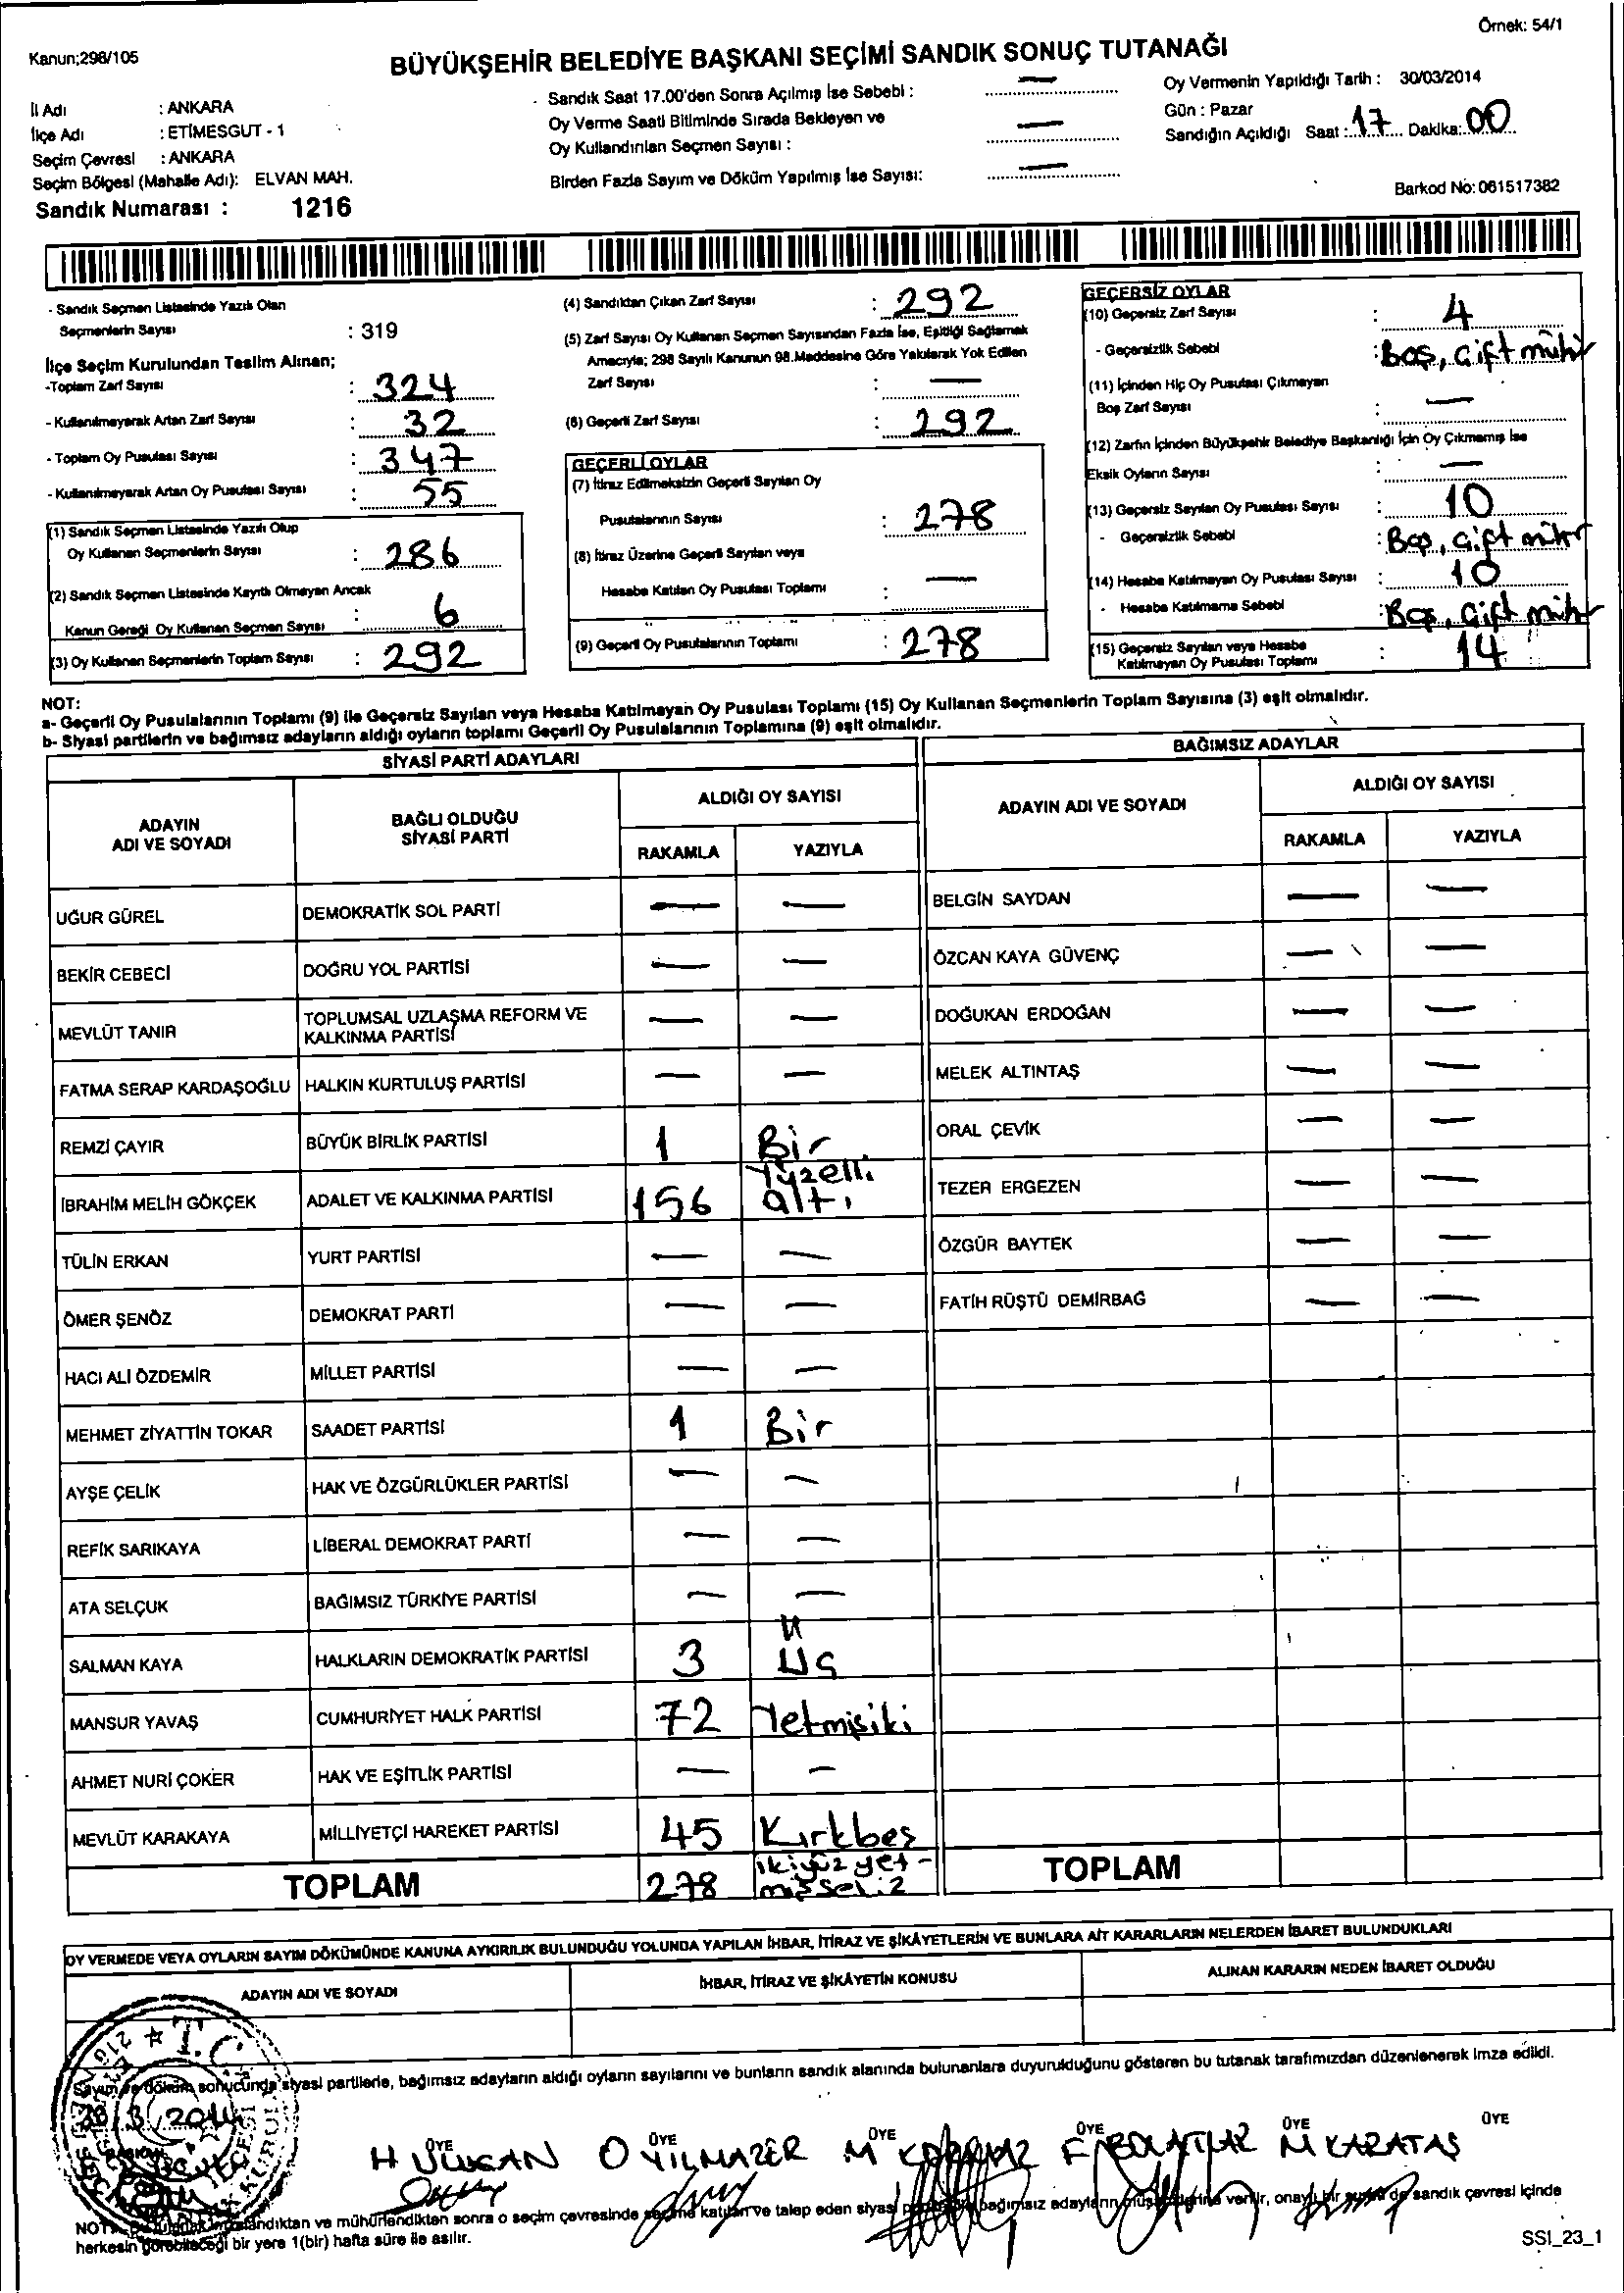 Örnek: 54/1
Kanun;298/105
BÜYÜKŞEHİR BELEDİYE BAŞKANI SEÇİMİ SANDIK SONUÇ TUTANAĞI
İl Adı : ANKARA
İlçe Adı : ETİMESGUT - 1
Seçim Çevresi : ANKARA
Seçim Bölgesi (Mahalle Adı): ELVAN MAH.
Sandık Numarası : 1216
Sandık Saat 17.00'den Sonra Açılmış İse Sebebi : —
Oy Verme Saati Bitiminde Sırada Bekleyen ve
Oy Kullandırılan Seçmen Sayısı : —
Birden Fazla Sayım ve Döküm Yapılmış İse Sayısı: —
Oy Vermenin Yapıldığı Tarih : 30/03/2014
Gün : Pazar
Sandığın Açıldığı Saat : 17 Dakika: 00
Barkod No: 061517382
- Sandık Seçmen Listesinde Yazılı Olan
Seçmenlerin Sayısı : 319
İlçe Seçim Kurulundan Teslim Alınan;
-Toplam Zarf Sayısı : 324
- Kullanılmayarak Artan Zarf Sayısı : 32
- Toplam Oy Pusulası Sayısı : 347
- Kullanılmayarak Artan Oy Pusulası Sayısı : 55
(1) Sandık Seçmen Listesinde Yazılı Olup
Oy Kullanan Seçmenlerin Sayısı : 286
(2) Sandık Seçmen Listesinde Kayıtlı Olmayan Ancak
Kanun Gereği Oy Kullanan Seçmen Sayısı : 6
(3) Oy Kullanan Seçmenlerin Toplam Sayısı : 292
(4) Sandıktan Çıkan Zarf Sayısı : 292
(5) Zarf Sayısı Oy Kullanan Seçmen Sayısından Fazla İse, Eşitliği Sağlamak
Amacıyla; 298 Sayılı Kanunun 98.Maddesine Göre Yakılarak Yok Edilen
Zarf Sayısı : —
(6) Geçerli Zarf Sayısı : 292
GEÇERLİ OYLAR
(7) İtiraz Edilmeksizin Geçerli Sayılan Oy
Pusulalarının Sayısı : 278
(8) İtiraz Üzerine Geçerli Sayılan veya
Hesaba Katılan Oy Pusulası Toplamı : —
(9) Geçerli Oy Pusulalarının Toplamı : 278
GEÇERSİZ OYLAR
(10) Geçersiz Zarf Sayısı : 4
- Geçersizlik Sebebi : Boş, çift mühür
(11) İçinden Hiç Oy Pusulası Çıkmayan
Boş Zarf Sayısı : —
(12) Zarfın İçinden Büyükşehir Belediye Başkanlığı İçin Oy Çıkmamış İse
Eksik Oyların Sayısı : —
(13) Geçersiz Sayılan Oy Pusulası Sayısı : 10
- Geçersizlik Sebebi : Boş, çift mühr
(14) Hesaba Katılmayan Oy Pusulası Sayısı : 10
- Hesaba Katılmama Sebebi : Boş, çift mühr
(15) Geçersiz Sayılan veya Hesaba
Katılmayan Oy Pusulası Toplamı : 14
NOT:
a- Geçerli Oy Pusulalarının Toplamı (9) ile Geçersiz Sayılan veya Hesaba Katılmayan Oy Pusulası Toplamı (15) Oy Kullanan Seçmenlerin Toplam Sayısına (3) eşit olmalıdır.
b- Siyasi partilerin ve bağımsız adayların aldığı oyların toplamı Geçerli Oy Pusulalarının Toplamına (9) eşit olmalıdır.
SİYASİ PARTİ ADAYLARI
ADAYIN ADI VE SOYADI BAĞLI OLDUĞU SİYASİ PARTİ ALDIĞI OY SAYISI
RAKAMLA YAZIYLA
UĞUR GÜREL DEMOKRATİK SOL PARTİ — —
BEKİR CEBECİ DOĞRU YOL PARTİSİ — —
MEVLÜT TANIR TOPLUMSAL UZLAŞMA REFORM VE KALKINMA PARTİSİ — —
FATMA SERAP KARDAŞOĞLU HALKIN KURTULUŞ PARTİSİ — —
REMZİ ÇAYIR BÜYÜK BİRLİK PARTİSİ 1 Bir
İBRAHİM MELİH GÖKÇEK ADALET VE KALKINMA PARTİSİ 156 Yüzelli altı
TÜLİN ERKAN YURT PARTİSİ — —
ÖMER ŞENÖZ DEMOKRAT PARTİ — —
HACI ALİ ÖZDEMİR MİLLET PARTİSİ — —
MEHMET ZİYATTİN TOKAR SAADET PARTİSİ 1 Bir
AYŞE ÇELİK HAK VE ÖZGÜRLÜKLER PARTİSİ — —
REFİK SARIKAYA LİBERAL DEMOKRAT PARTİ — —
ATA SELÇUK BAĞIMSIZ TÜRKİYE PARTİSİ — —
SALMAN KAYA HALKLARIN DEMOKRATİK PARTİSİ 3 Üç
MANSUR YAVAŞ CUMHURİYET HALK PARTİSİ 72 Yetmişiki
AHMET NURİ ÇOKER HAK VE EŞİTLİK PARTİSİ — —
MEVLÜT KARAKAYA MİLLİYETÇİ HAREKET PARTİSİ 45 Kırkbeş
TOPLAM 278 ikiyüzyet-
mişsekiz
BAĞIMSIZ ADAYLAR
ADAYIN ADI VE SOYADI ALDIĞI OY SAYISI
RAKAMLA YAZIYLA
BELGİN SAYDAN — —
ÖZCAN KAYA GÜVENÇ — —
DOĞUKAN ERDOĞAN — —
MELEK ALTINTAŞ — —
ORAL ÇEVİK — —
TEZER ERGEZEN — —
ÖZGÜR BAYTEK — —
FATİH RÜŞTÜ DEMİRBAĞ — —
TOPLAM
OY VERMEDE VEYA OYLARIN SAYIM DÖKÜMÜNDE KANUNA AYKIRILIK BULUNDUĞU YOLUNDA YAPILAN İHBAR, İTİRAZ VE ŞİKÂYETLERİN VE BUNLARA AİT KARARLARIN NELERDEN İBARET BULUNDUKLARI
ADAYIN ADI VE SOYADI İHBAR, İTİRAZ VE ŞİKÂYETİN KONUSU ALINAN KARARIN NEDEN İBARET OLDUĞU
T.C.
Sayım ve döküm sonucunda siyasi partilerle, bağımsız adayların aldığı oyların sayılarını ve bunların sandık alanında bulunanlara duyurulduğunu gösteren bu tutanak tarafımızdan düzenlenerek imza edildi.
30/3/2014
BAŞKAN ÜYE ÜYE ÜYE ÜYE ÜYE ÜYE
H ULUCAN O YILMAZER M KORKMAZ F BOLATLAR M KARATAŞ
NOT: ve mühürlendikten sonra o seçim çevresinde seçime katılan ve talep eden siyasi bağımsız adayların verilir, onaylı bir sureti de sandık çevresi içinde
herkesin görebileceği bir yere 1(bir) hafta süre ile asılır.
SSI_23_1